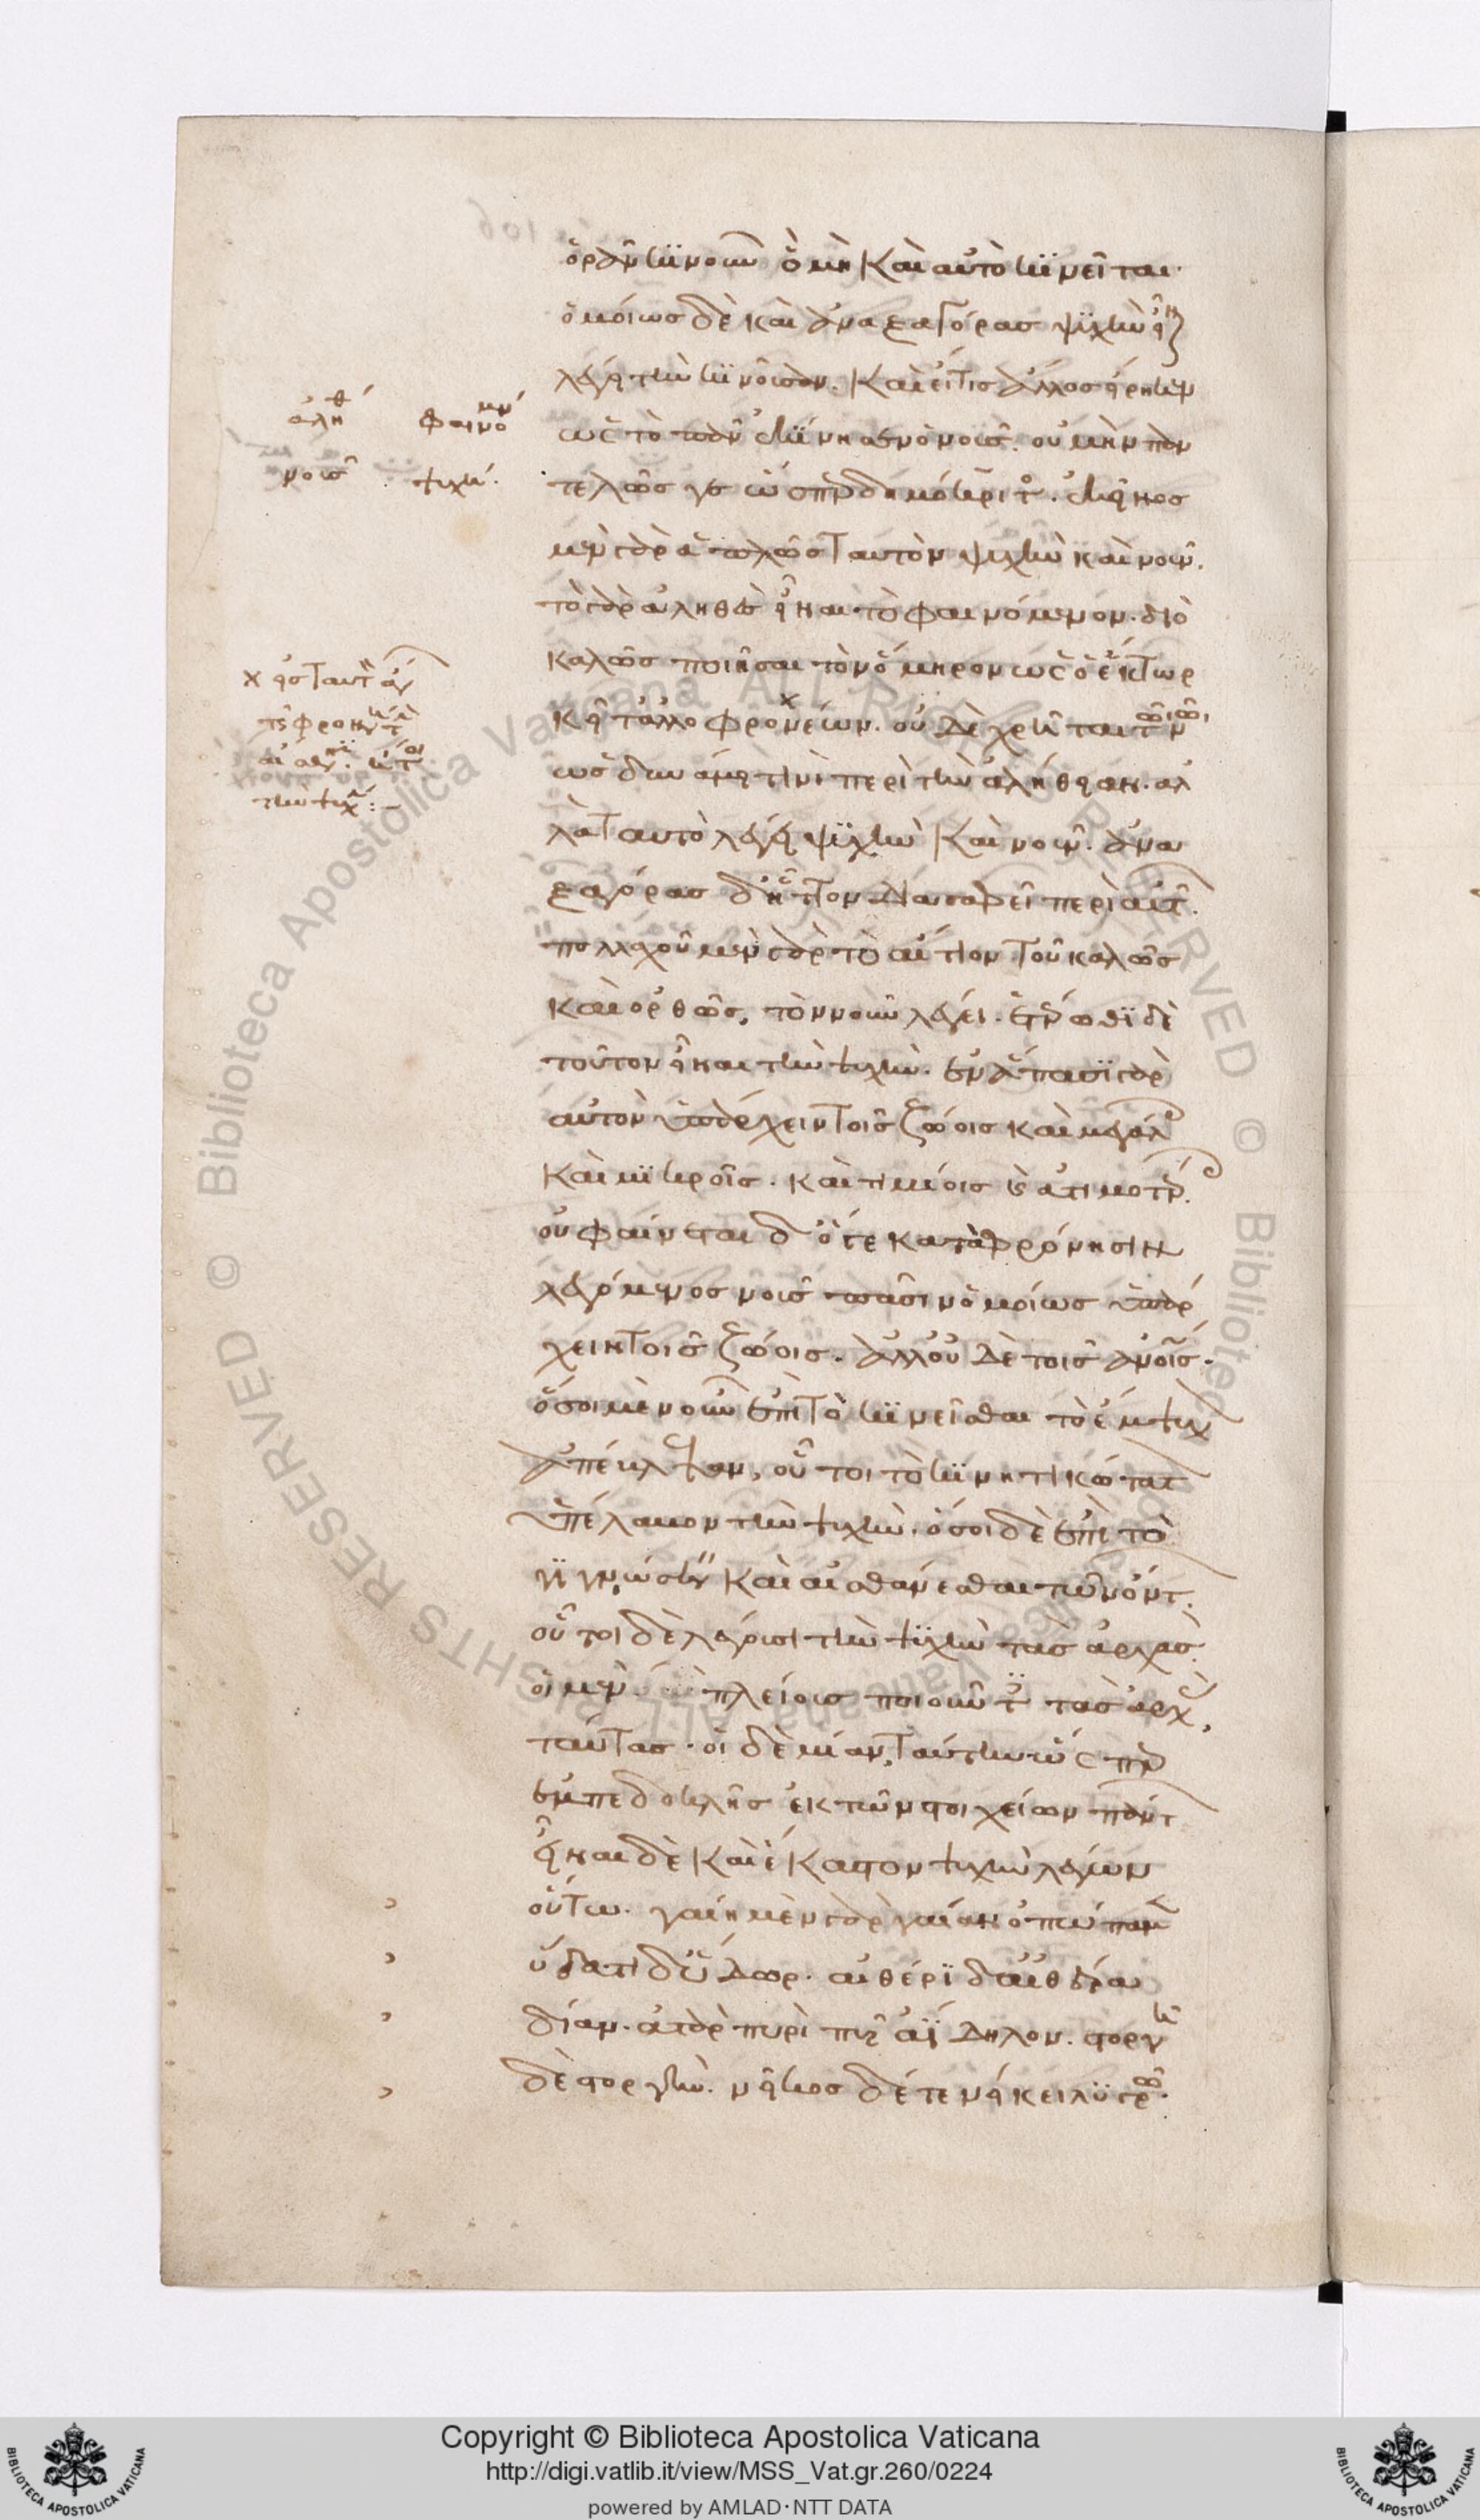 ὁρᾶν κινοῦν ὃ μὴ καὶ αὐτὸ κινεῖται·
ὁμοίως δὲ καὶ ἀναξαγόρας ψυχὴν εἶναι
λέγει τὴν κινοῦσαν. καὶ εἴ τις ἄλλος εἴρηκεν
ὡς τὸ πᾶν ἐκίνησε νοῦς. οὐ μὴν παν
τελῶς γε ὥσπερ δημόκριτος. ἐκεῖνος
μὲν γὰρ ἁπλῶς ταυτὸν ψυχὴν καὶ νοῦν.
τὸ γὰρ ἀληθὲς εἶναι τὸ φαινόμενον. διὸ
καλῶς ποιῆσαι τὸν ὅμηρον ὡς ὁ ἕκτωρ
κεῖτ' ἀλλοφρονέων. οὐ δὲ χρῆται τῷ νῷ
ὡς δυνάμει τινὶ περὶ τὴν ἀλήθειαν. ἀλ
λὰ ταυτὸ λέγει ψυχὴν καὶ νοῦν. ἀνα
ξαγόρας δ' ἧττον διασαφεῖ περὶ αὐτῶν.
πολλαχοῦ μὲν γὰρ τὸ αἴτιον τοῦ καλῶς
καὶ ὀρθῶς, τὸν νοῦν λέγει. ἑτέρωθι δὲ
τοῦτον εἶναι τὴν ψυχήν. ἐν ἅπασι γὰρ
αὐτὸν ὑπάρχειν τοῖς ζῴοις καὶ μεγάλοις
καὶ μικροῖς. καὶ τιμίοις καὶ ἀτιμοτέροις.
οὐ φαίνεται δ' ὅ τε κατὰ φρόνησιν
λεγόμενος νοῦς πᾶσιν ὁμοίως ὑπάρ
χειν τοῖς ζῴοις. ἀλλ' οὐδὲ τοῖς ἀνοις.
ὅσοι μὲν οὖν ἐπὶ τὸ κινεῖσθαι τὸ ἔμψυχον
ἀπέβλεψαν, οὗτοι τὸ κινητικώτατον
ὑπέλαβον τὴν ψυχήν. ὅσοι δὲ ἐπὶ τὸ
γιγνώσκειν καὶ αἰσθάνεσθαι τῶν ὄντων.
οὗτοι δὲ λέγουσι τὴν ψυχὴν τὰς ἀρχάς.
οἱ μὲν πλείους ποιοῦντες τὰς ἀρχὰς,
ταύτας. οἱ δὲ μίαν, ταύτην ὥσπερ
ἐμπεδοκλῆς ἐκ τῶν στοιχείων πάντων
εἶναι δὲ καὶ ἕκαστον ψυχὴν λέγων
οὕτω. γαίῃ μὲν γὰρ γαῖαν ὀπώπαμεν
ὕδατι δ' ὕδωρ. αἰθέρι δ' αἰθέρα
δῖαν. ἀτὰρ πυρὶ πῦρ ἀίδηλον. στοργῇ
δὲ στοργήν. νεῖκος δέ τε νείκει λυγρῷ.
ἀληθ φαινόμεν
νοῦς ψυχή.
Copyright © Biblioteca Apostolica Vaticana
http://digi.vatlib.it/view/MSS_Vat.gr.260/0224
powered by AMLAD·NTT DATA